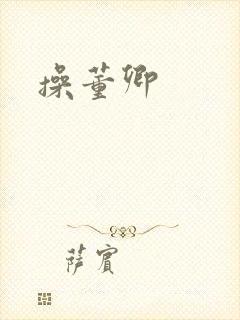 操董卿
萨宾